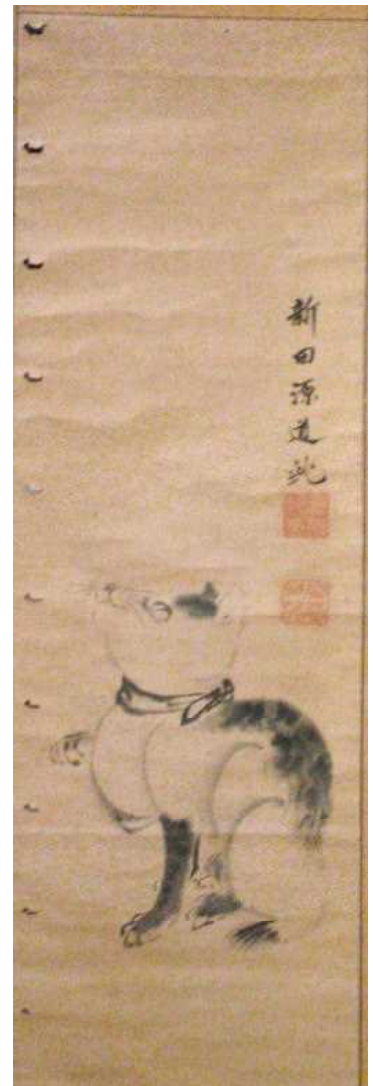 新田源道純